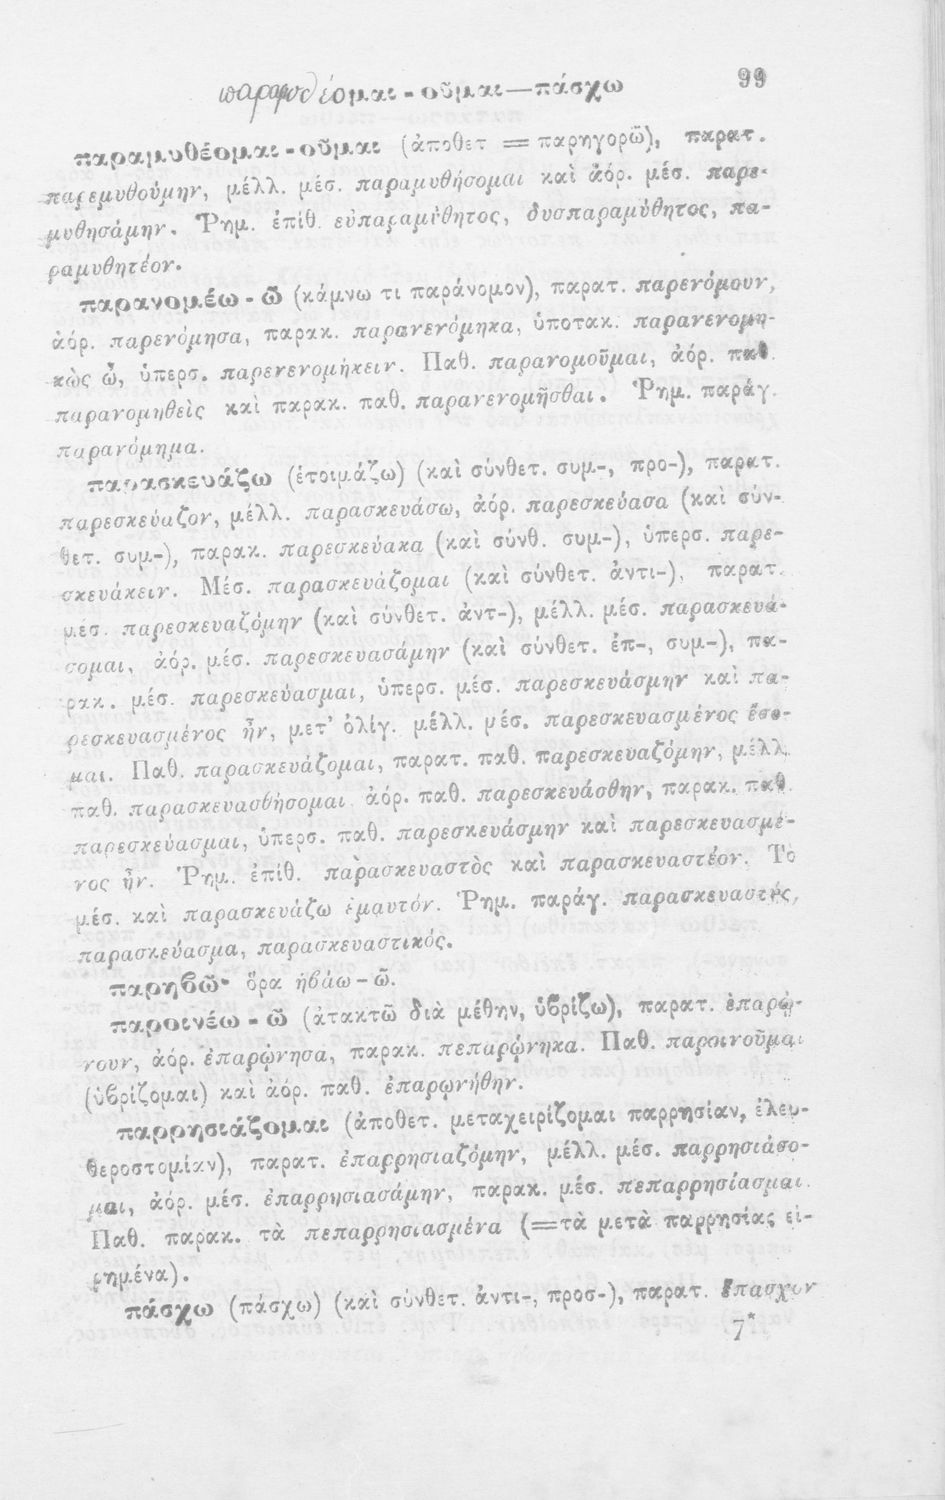 παραμυθέομαι - οῦμαι—πάσχω 99
παραμυθέομαι - οῦμαι (ἀποθετ = παρηγορῶ), παρατ.
παρεμυθούμην, μέλλ. μέσ. παραμυθήσομαι καὶ ἀόρ. μέσ. παρε-
μυθησάμην. Ῥημ. ἐπίθ. εὐπαραμύθητος, δυσπαραμύθητος, πα-
ραμυθητέον.
παρανομέω - ῶ (κάμνω τι παράνομον), παρατ. παρενόμουν,
ἀόρ. παρενόμησα, παρακ. παρανενόμηκα, ὑποτακ. παρανενομη-
κὼς ὦ, ὑπερσ. παρενενομήκειν. Παθ. παρανομοῦμαι, ἀόρ. παθ.
παρανομηθεὶς καὶ παρακ. παθ. παρανενομῆσθαι. Ῥημ. παράγ.
παρανόμημα.
παρασκευάζω (ἑτοιμάζω) (καὶ σύνθετ. συμ-, προ-), παρατ.
παρεσκεύαζον, μέλλ. παρασκευάσω, ἀόρ. παρεσκεύασα (καὶ σύν-
θετ. συμ-), παρακ. παρεσκεύακα (καὶ σύνθ. συμ-), ὑπερσ. παρε-
σκευάκειν. Μέσ. παρασκευάζομαι (καὶ σύνθετ. ἀντι-), παρατ.
μεσ. παρεσκευαζόμην (καὶ σύνθετ. ἀντ-), μέλλ. μέσ. παρασκευά-
σομαι, ἀόρ. μέσ. παρεσκευασάμην (καὶ σύνθετ. ἐπ-, συμ-), πα-
ρακ. μέσ. παρεσκεύασμαι, ὑπερσ. μέσ. παρεσκευάσμην καὶ πα-
ρεσκευασμένος ἦν, μετ' ὀλίγ. μέλλ. μέσ. παρεσκευασμένος ἔσο-
μαι. Παθ. παρασκευάζομαι, παρατ. παθ. παρεσκευαζόμην, μέλλ.
παθ. παρασκευασθήσομαι, ἀόρ. παθ. παρεσκευάσθην, παρακ. παθ.
παρεσκεύασμαι, ὑπερσ. παθ. παρεσκευάσμην καὶ παρεσκευασμέ-
νος ἦν. Ῥημ. ἐπίθ. παρασκευαστὸς καὶ παρασκευαστέον. Τὸ
μέσ. καὶ παρασκευάζω ἐμαυτόν. Ῥημ. παράγ. παρασκευαστής,
παρασκεύασμα, παρασκευαστικός.
παρηβῶ· ὅρα ἡβάω - ῶ.
παροινέω - ῶ (ἀτακτῶ διὰ μέθην, ὑβρίζω), παρατ. ἐπαρῴ-
νουν, ἀόρ. ἐπαρῴνησα, παρακ. πεπαρῴνηκα. Παθ. παροινοῦμαι
(ὑβρίζομαι) καὶ ἀόρ. παθ. ἐπαρῳνήθην.
παρρησιάζομαι (ἀποθετ. μεταχειρίζομαι παρρησίαν, ἐλευ-
θεροστομίαν), παρατ. ἐπαρρησιαζόμην, μέλλ. μέσ. παρρησιάσο-
μαι, ἀόρ. μέσ. ἐπαρρησιασάμην, παρακ. μέσ. πεπαρρησίασμαι.
Παθ. παρακ. τὰ πεπαρρησιασμένα (=τὰ μετὰ παρρησίας εἰ-
ρημένα).
πάσχω (πάσχω) (καὶ σύνθετ. ἀντι-, προσ-), παρατ. ἔπασχον
7*